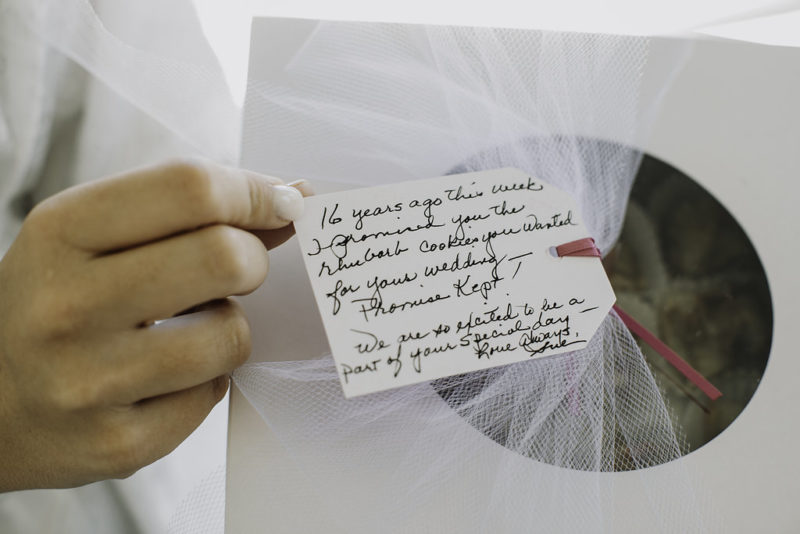 16 years ago this week
I promised you the
rhubarb cookies you wanted
for your wedding!
Promise Kept!
We are so excited to be a
part of your special day —
Love Always,
Sue